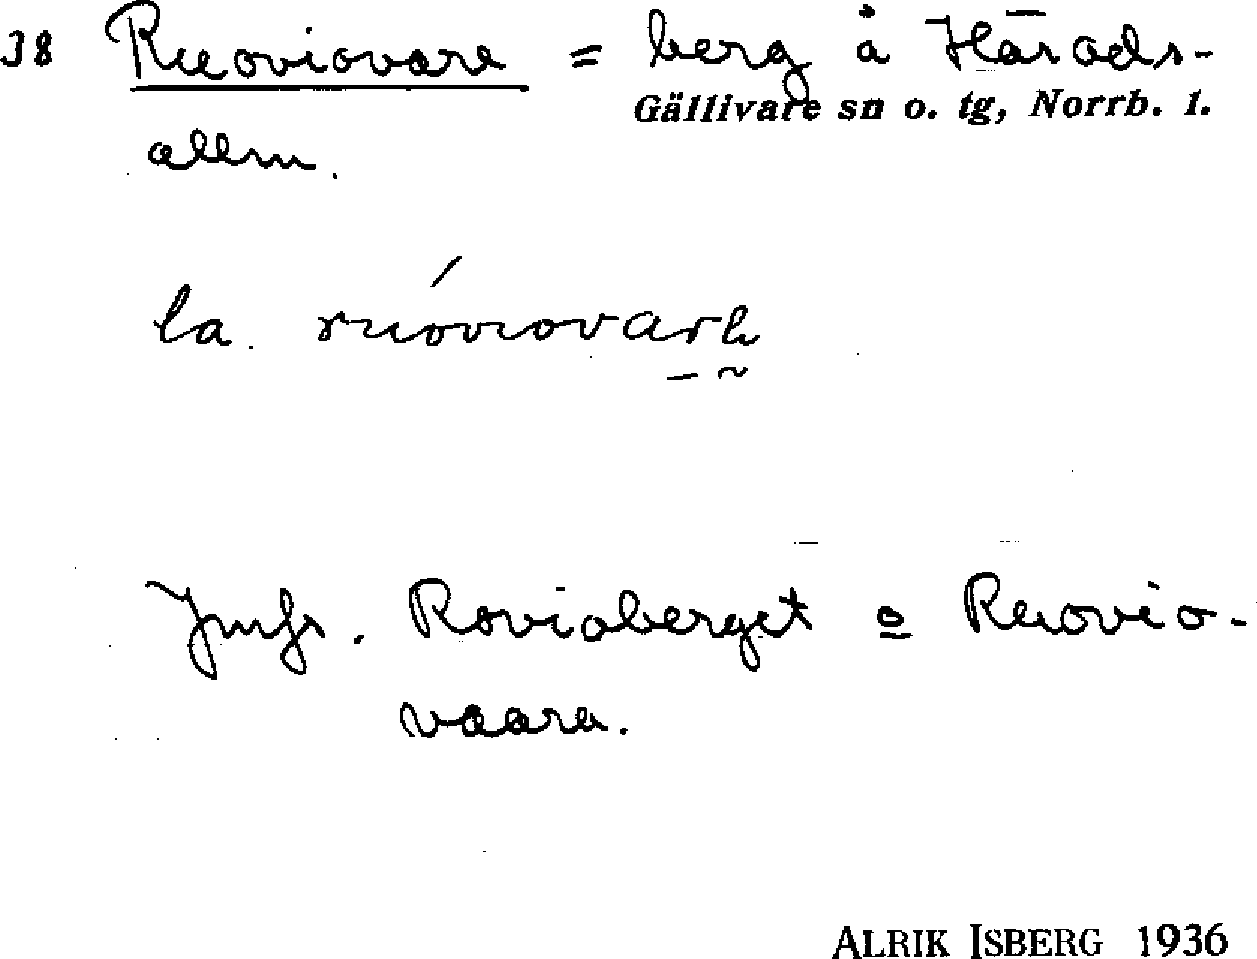 38 Ruoviovare = berg å Härads-
Gällivare sn o. tg, Norrb. l.
allm.
la.
Jmfr. Rovioberget o Ruovio-
vaara.
ALRIK ISBERG 1936